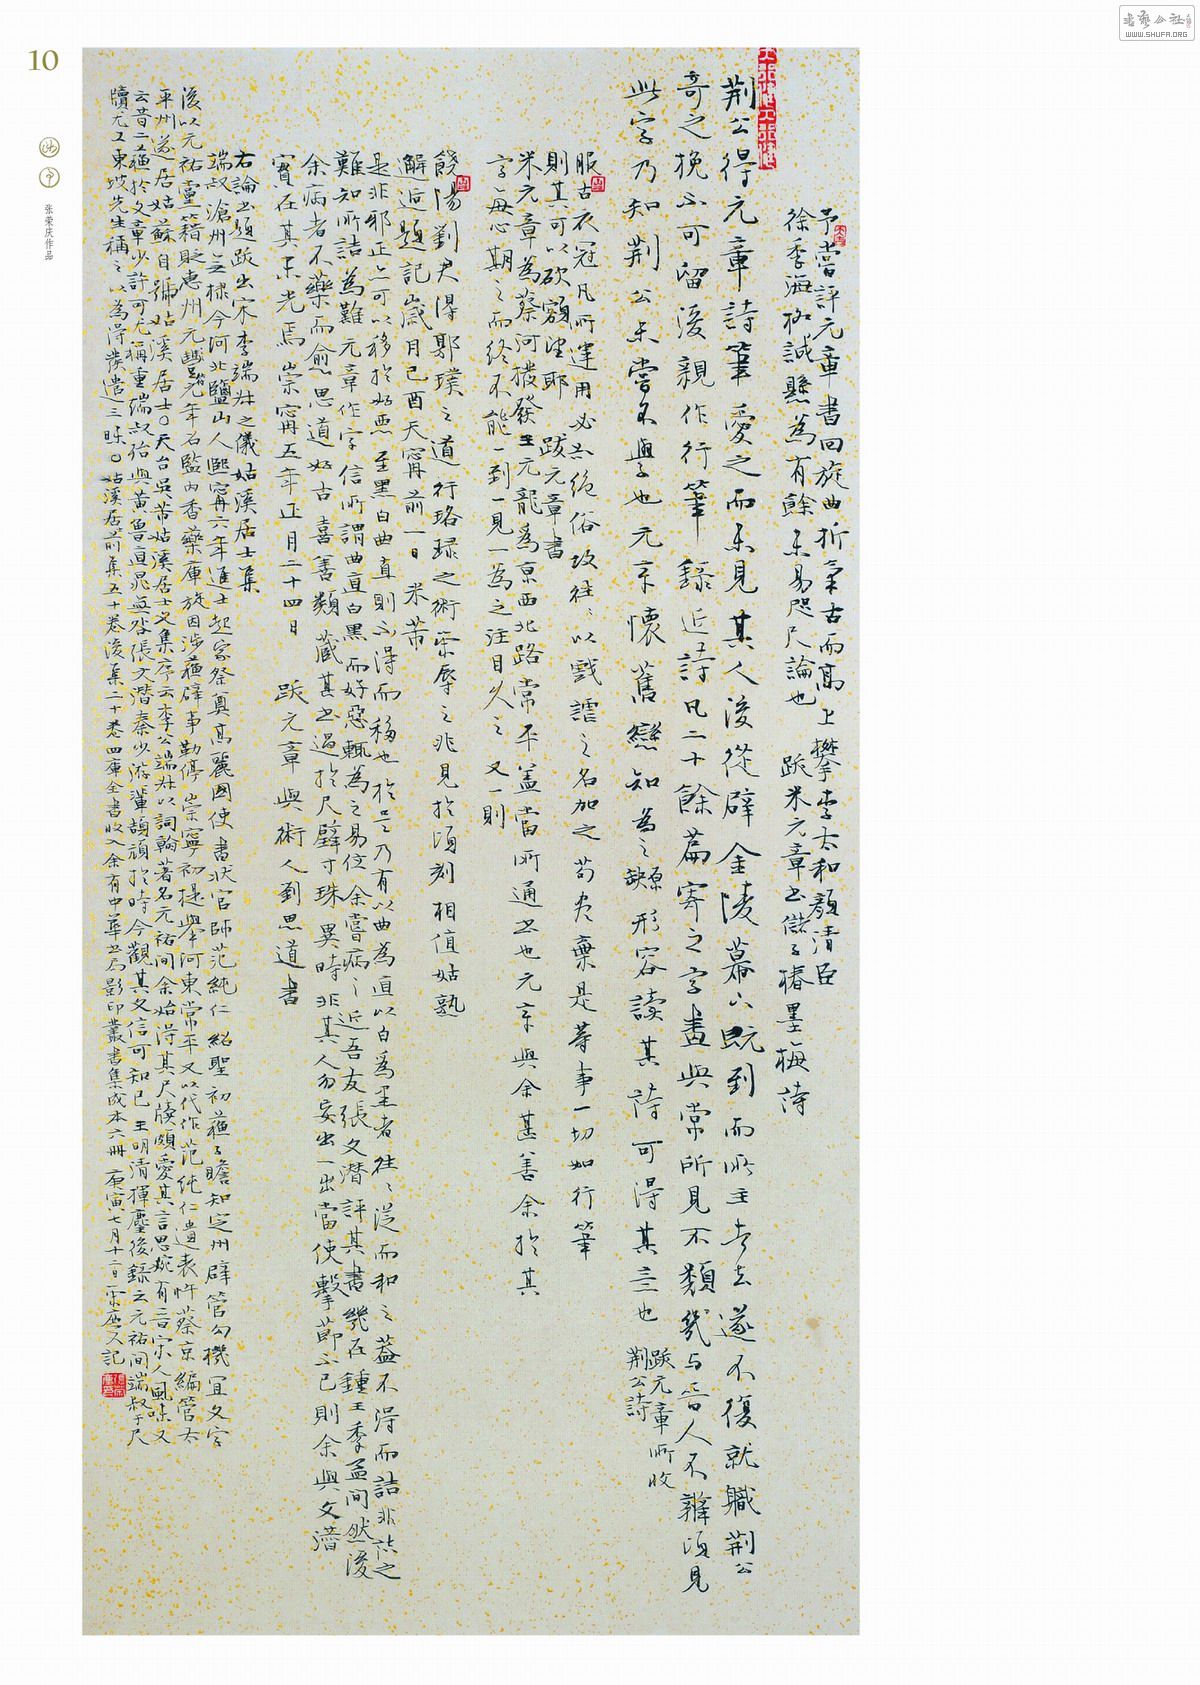 10
张荣庆作品
WWW.SHUFA.ORG
予嘗評元章書回旋曲折氣古而高上攀李太和顏清臣
徐季海柳誠懸為有餘未易咫尺論也 跋米元章書儲子椿墨梅詩
荆公得元章詩筆愛之而未見其人後從辟金陵幕下既到而所主者去遂不復就職荆公
奇之挽不可留後親作行筆錄近詩凡二十餘篇寄之字畫與常所見不類幾与晋人不辨須見
此字乃知荆公未嘗不學也元章懷舊戀知為之缺原形容讀其詩可得其意也
跋元章所收
荆公詩
服古衣冠凡所運用必去絶俗故往往以戲謔之名加之苟尽棄是等事一切如行筆
則其可以砍額望耶 跋元章書
米元章為蔡河撥發王元龍為京西北路常平盖當所通书也元章與余甚善余於其
字每心期之而終不能一到一見一為之注目久之 又一則
饒陽劉君得郭璞之道行珞琭之術榮辱之兆見於頃刻相值姑熟
邂逅題記歲月己酉天甯前一日 米芾
是非邪正亦可以移於好惡至黑白曲直則不得而移也於是乃有以曲為直以白為黑者往往從而和之蓋不得而詰非詰之
難知所詰為難元章作字信所謂曲直白黑而好惡輒為之易位余嘗病之近吾友張文潛評其書幾在鍾王季孟間然後
余病者不藥而愈思道好古喜善類藏其书過於尺璧寸珠異時非其人勿妄出一出當使擊節不已則余與文潛
實在其末光焉崇甯五年正月二十四日 跋元章與術人劉思道書
右論书題跋出宋李端叔之儀姑溪居士集
端叔滄州無棣今河北鹽山人熙甯六年進士起家祭奠高麗國使書狀官師范純仁紹聖初蘇子瞻知定州辟管勾機宜文字
後以元祐黨籍貶惠州元豐元年石監内香藥庫旋因涉蘇辟事勒停崇寧初提举河東常平又以代作范純仁遺表忤蔡京編管太
平州遂居姑蘇自號姑溪居士天台吳芾姑溪居士文集序云李公端叔以詞翰著名元祐間余始得其尺牘頗愛其言思婉有晋宋人風味又
云昔二蘇於文章少許可尤稱重端叔殆與黄魯直晁無咎張文潛秦少游輩頡頏於時今觀其文信可知已王明清揮麈後錄云元祐間端叔于尺
牘尤工東坡先生稱之以為得發遣三昧姑溪居前集五十卷後集二十卷四庫全書收入余有中華书局影印叢書集成本六冊庚寅七月十二日榮庆又記